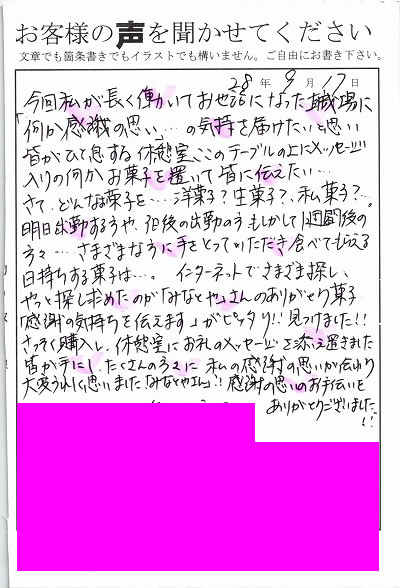 お客様の声を聞かせてください
文章でも箇条書きでもイラストでも構いません。ご自由にお書き下さい。
28年9月17日
今回私が長く働いてお世話になった職場に
「何か感謝の思い…の気持を届けたいと思い
皆がひと息する休憩室、ここのテーブルの上にメッセージ
入りの何かお菓子を置いて皆に伝えたい…
さて、どんなお菓子を…洋菓子?生菓子?、和菓子?…。
明日出勤する方や、その後の出勤の方もしかして1週間後の
方々… さまざまな方に手をとっていただき食べてもらえる
日持ちする菓子は…。 インターネットでさまざま探し、
やっと探し求めたのが「みなとや」さんのありがとう菓子
「感謝の気持ちを伝えます」がピッタリ!!見つけました!!
さっそく購入し、休憩室にお礼のメッセージを添え置きました
皆が手にし、たくさんの方々に 私の感謝の思いが伝わり
大変うれしく思いました「みなとやさん」!!感謝の思いのお手伝いを
ありがとうございました、!!